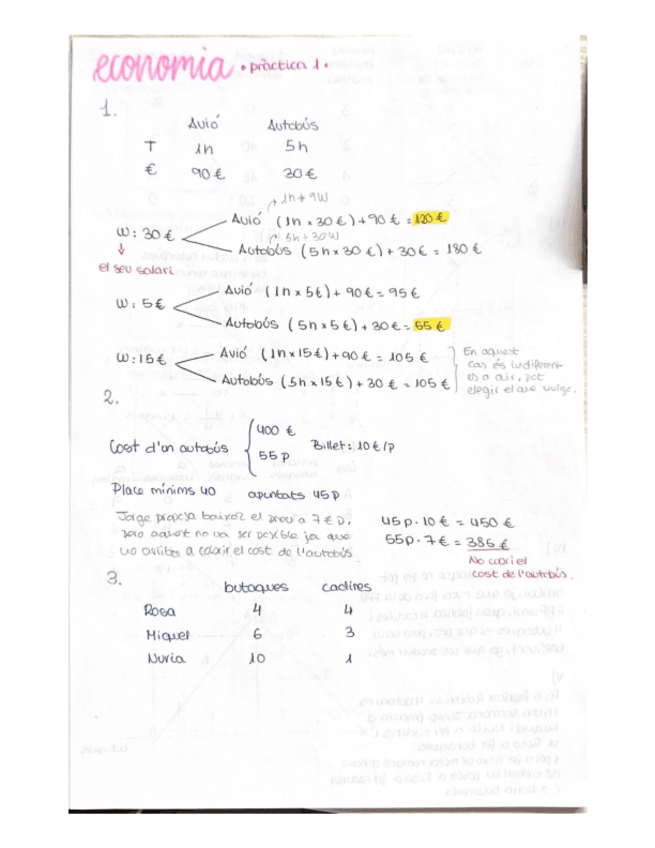 economia • pràctica 1 •
1.
Avió Autobús
T 1h 5h
€ 90€ 30€
→ 1h + 9W
Avió (1h x 30€) + 90€ = 120€
W: 30€
→ 5h + 30W
Autobús (5h x 30€) + 30€ = 180€
el seu salari
Avió (1h x 5€) + 90€ = 95€
W: 5€
Autobús (5h x 5€) + 30€ = 55€
W: 15€ Avió (1h x 15€) + 90€ = 105€
Autobús (5h x 15€) + 30€ = 105€
En aquest
cas és indiferent
és a dir, pot
elegir el que vulga.
2.
Cost d'un autobús 400 € Billet: 10€/p
55 p
Place mínims 40 apuntats 45p
Jorge proposa baixar el preu a 7€ p,
pero aquest no va ser possible ja que
no arriba a cobrir el cost de l'autobús.
45p. 10€ = 450€
55p. 7€ = 385€
No cobri el
cost de l'autobús.
3.
butaques cadires
Rosa 4 4
Miquel 6 3
Nuria 10 1